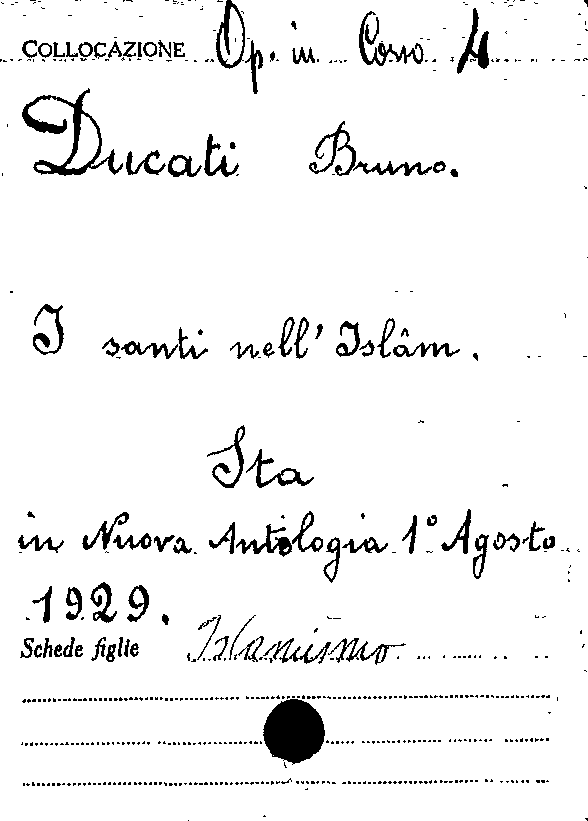 COLLOCAZIONE Op. in Corso 4
Ducati Bruno.
I santi nell' Islâm.
Sta
in Nuova Antologia 1° Agosto
1929.
Schede figlie Islamismo